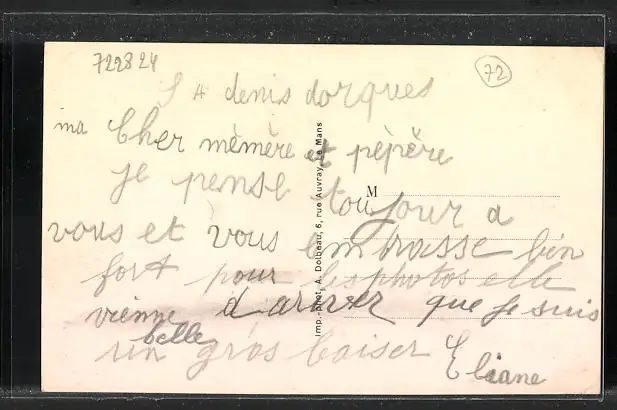 722824
72
St denis dorques
ma Cher mèmère et pépère
je pense toujour a
vous et vous embrasse bin
fort pour les photos elle
vienne d'ariver que je suis
belle
un gros baiser Eliane
M
Imp.-Phot. A. Dolbeau, 6, rue Auvray, Le Mans